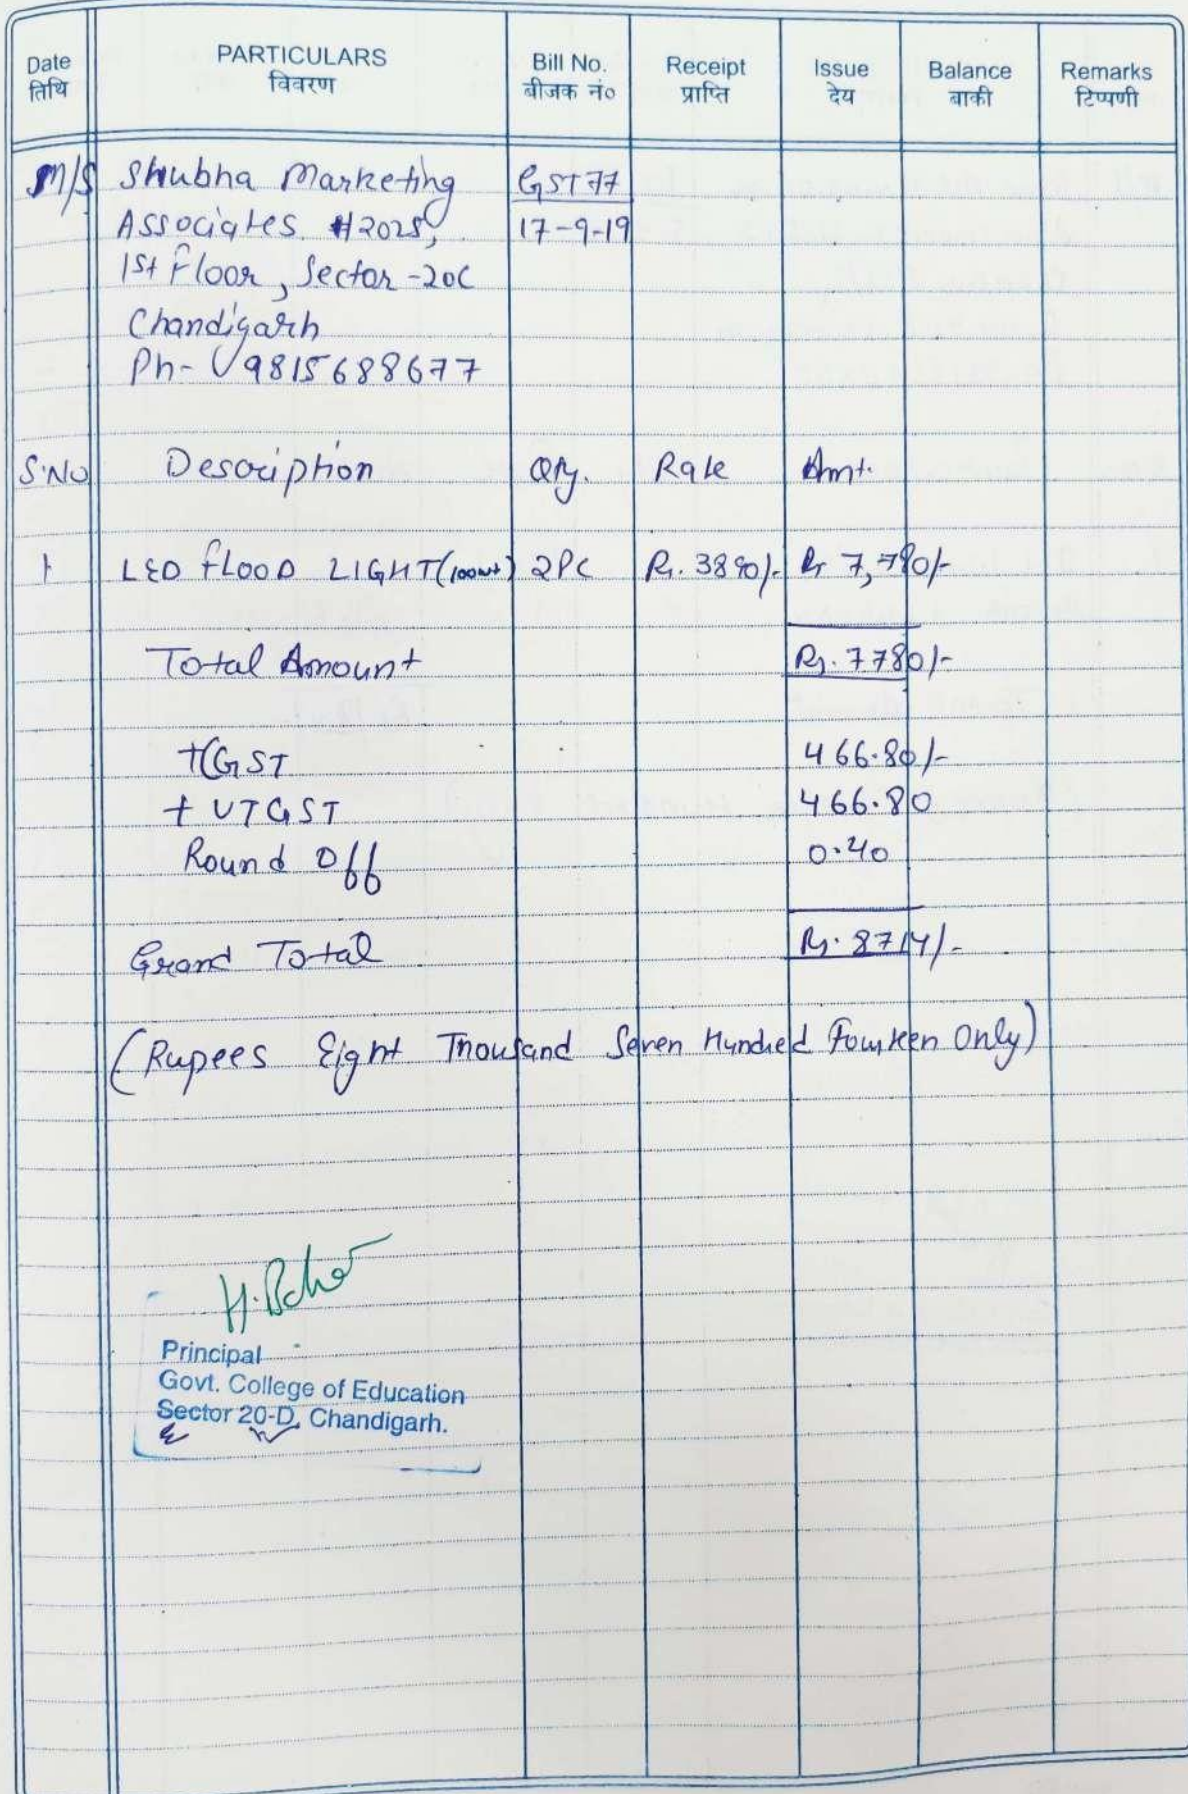 Date PARTICULARS Bill No. Receipt Issue Balance Remarks
तिथि विवरण बीजक नं० प्राप्ति देय बाकी टिप्पणी
M/S Shubha Marketing GST77
Associates #2028, 17-9-19
1st Floor, Sector-20C
Chandigarh
Ph- 9815688677
S.NO Description Qty. Rate Amt.
1 LED FLOOD LIGHT(100wt) 2PC Rs. 3890/- Rs 7,780/-
Total Amount Rs. 7780/-
+CGST 466.80/-
+UTGST 466.80
Round Off 0.40
Grand Total Rs. 8714/-
(Rupees Eight Thousand Seven Hundred Fourteen Only)
Principal
Govt. College of Education
Sector 20-D, Chandigarh.